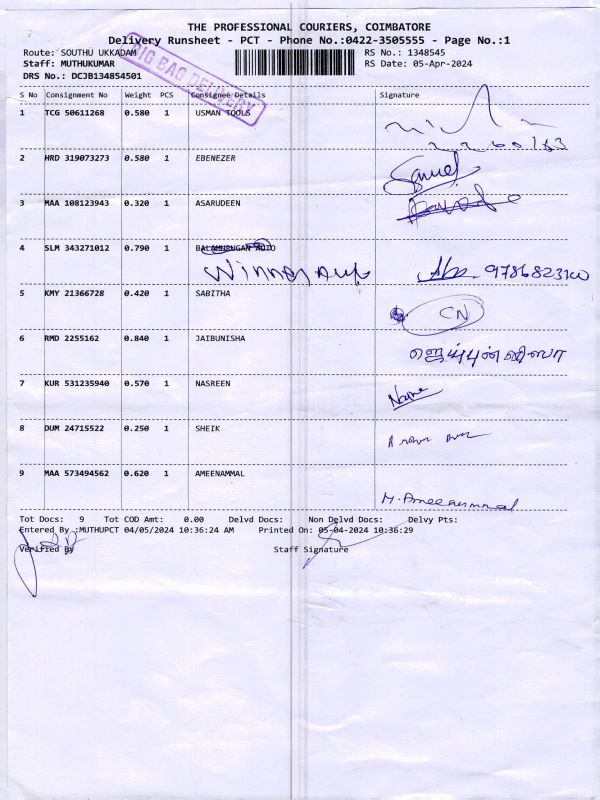 THE PROFESSIONAL COURIERS, COIMBATORE
Delivery Runsheet - PCT - Phone No.:0422-3505555 - Page No.:1
Route: SOUTHU UKKADAM RS No.: 1348545
Staff: MUTHUKUMAR RS Date: 05-Apr-2024
DRS No.: DCJB134854501
BIG BAG DELIVERY
S No Consignment No Weight PCS Consignee Details Signature
1 TCG 50611268 0.580 1 USMAN TOOLS
2 HRD 319073273 0.580 1 EBENEZER
3 MAA 108123943 0.320 1 ASARUDEEN
4 SLM 343271012 0.790 1 BALAMURUGAN AUTO
Winner 9786823100
5 KMY 21366728 0.420 1 SABITHA CN
6 RMD 2255162 0.840 1 JAIBUNISHA ஜெய்புன்னிஸா
7 KUR 531235940 0.570 1 NASREEN
8 DUM 24715522 0.250 1 SHEIK
9 MAA 573494562 0.620 1 AMEENAMMAL M.Ameenammal
Tot Docs: 9 Tot COD Amt: 0.00 Delvd Docs: Non Delvd Docs: Delvy Pts:
Entered By :MUTHUPCT 04/05/2024 10:36:24 AM Printed On: 05-04-2024 10:36:29
Verified By Staff Signature